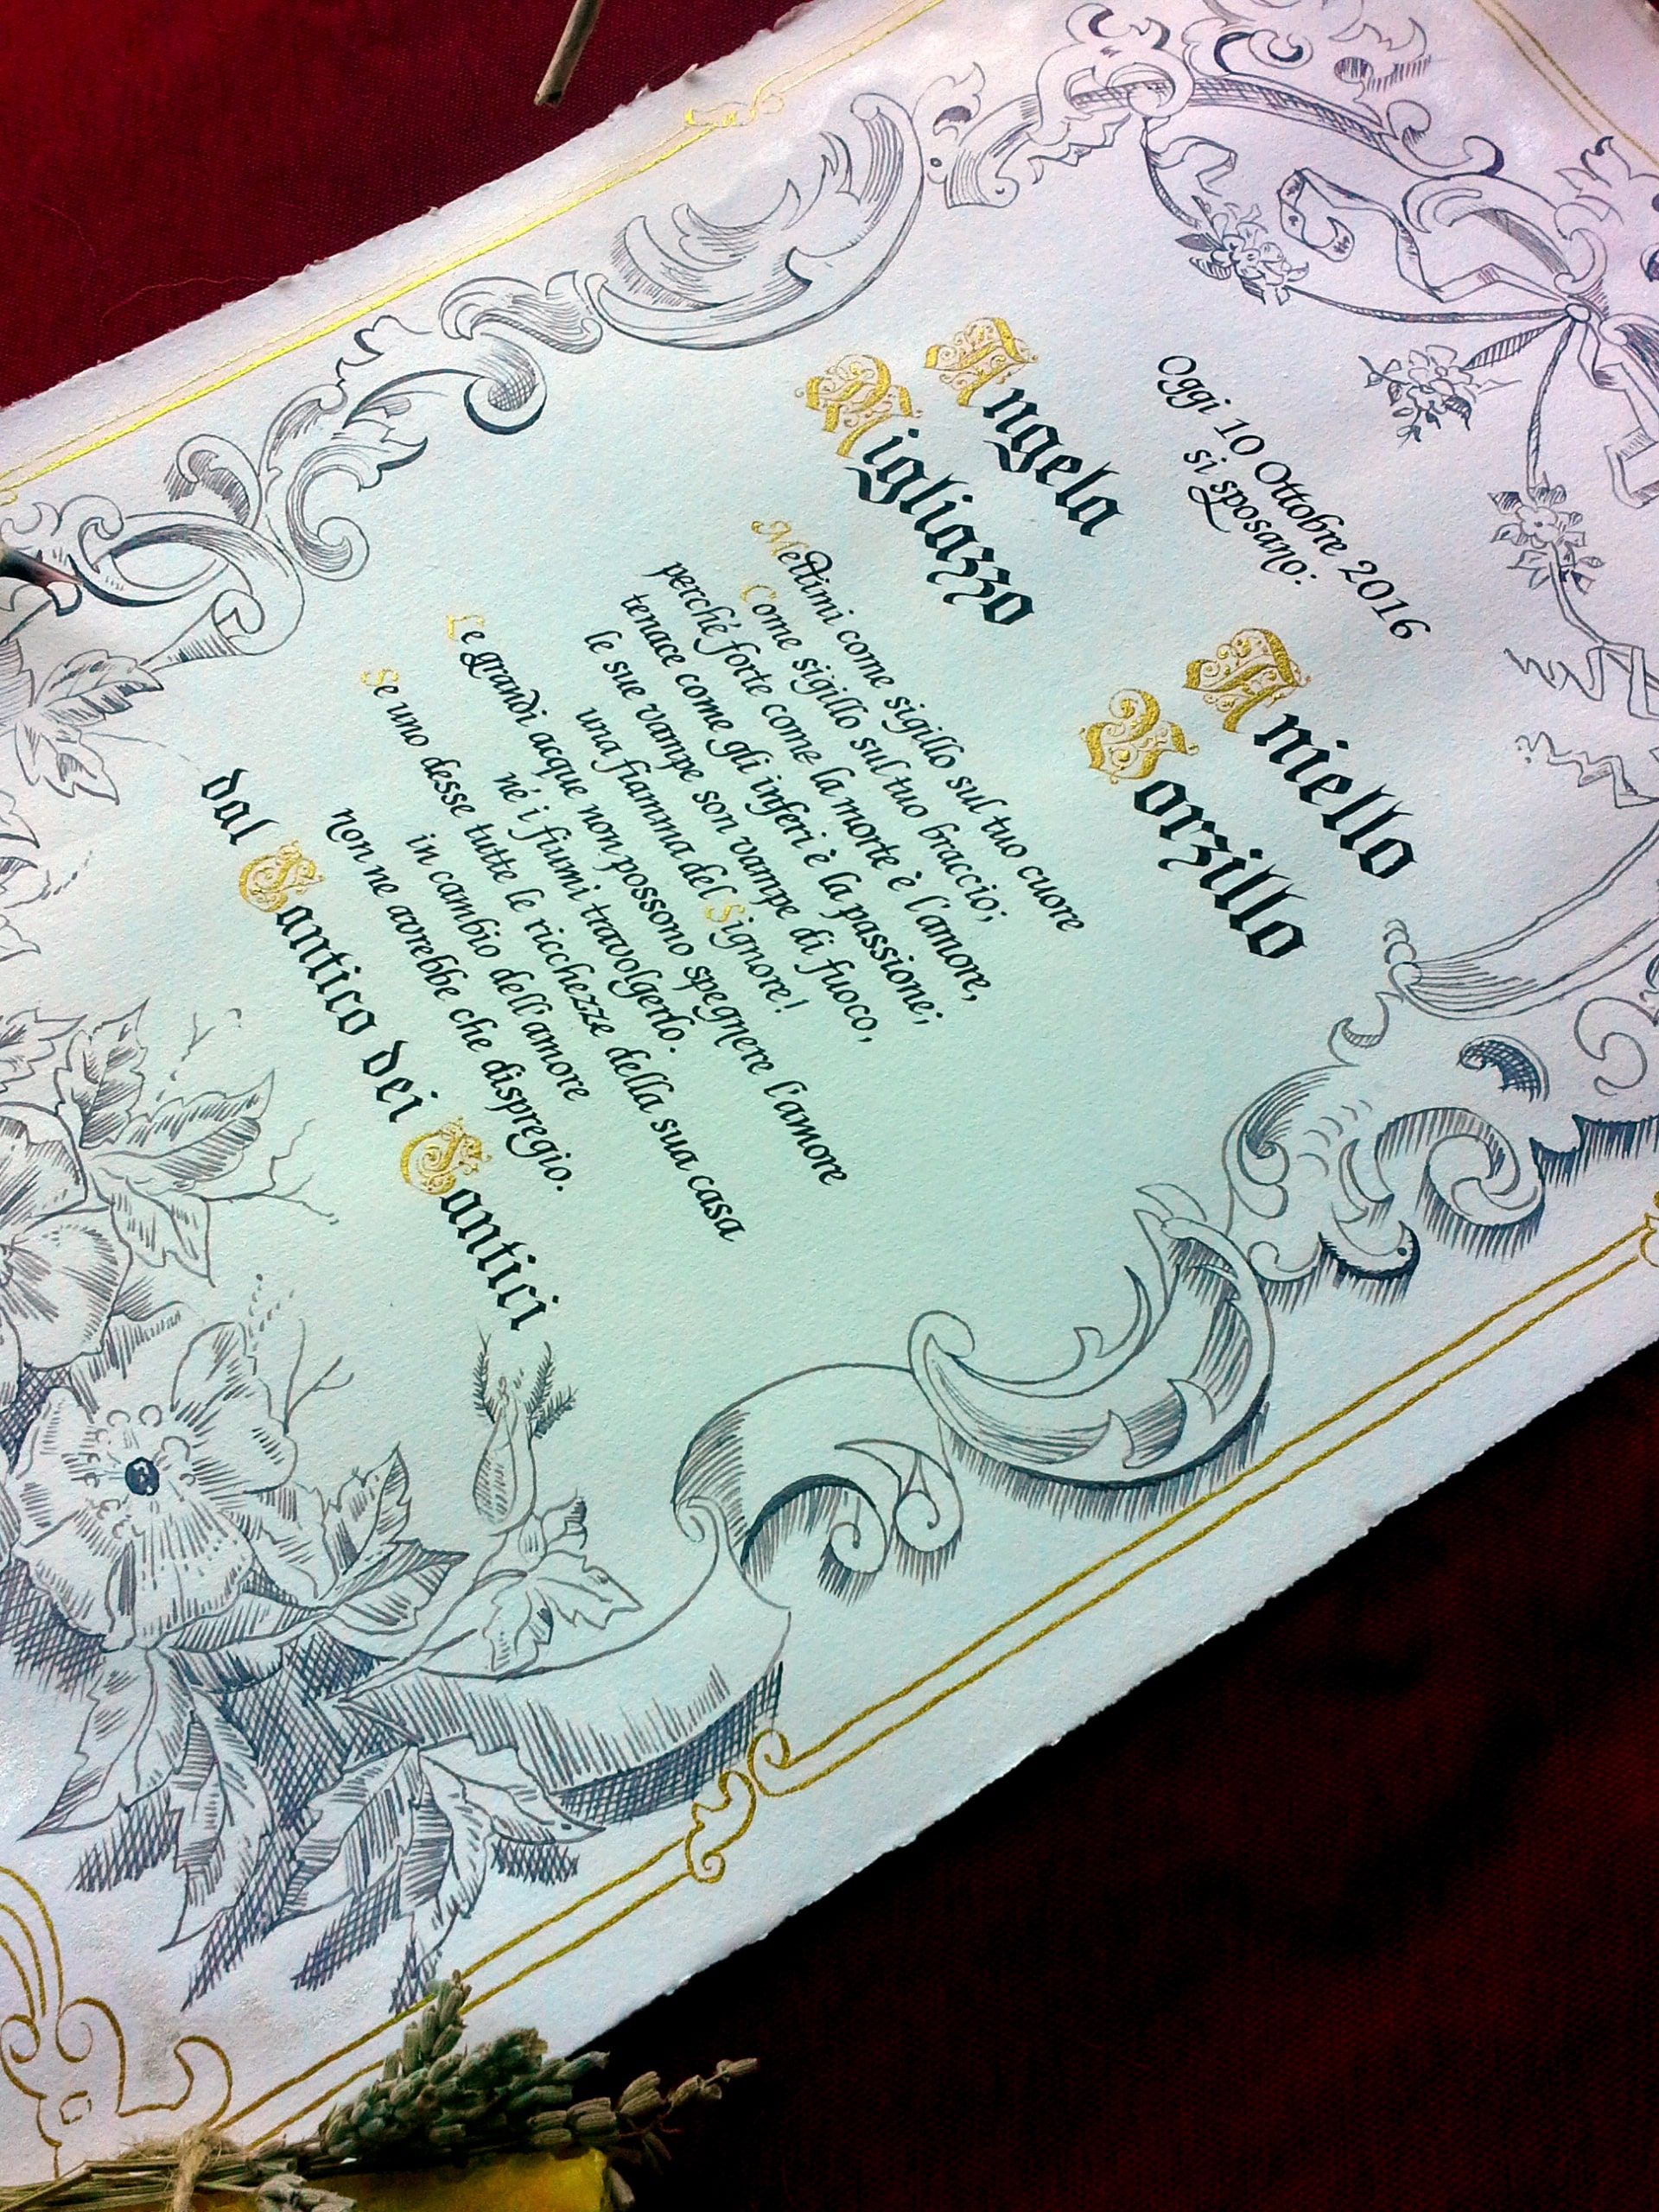 Oggi 10 Ottobre 2016
si sposano:
Angela
Migliazzo
Aniello
Borzillo
Mettimi come sigillo sul tuo cuore
Come sigillo sul tuo braccio;
perché forte come la morte è l'amore,
tenace come gli inferi è la passione;
le sue vampe son vampe di fuoco,
una fiamma del Signore!
Le grandi acque non possono spegnere l'amore
né i fiumi travolgerlo.
Se uno desse tutte le ricchezze della sua casa
in cambio dell'amore
non ne avrebbe che dispregio.
dal Cantico dei Cantici